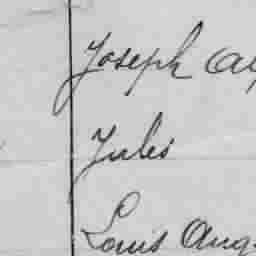 Joseph
Jules
Louis Aug